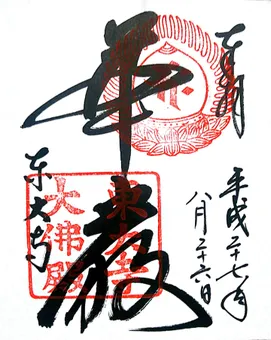 奉拝
平成二十七年
八月二十六日
華嚴
東大寺
東大寺
大佛殿